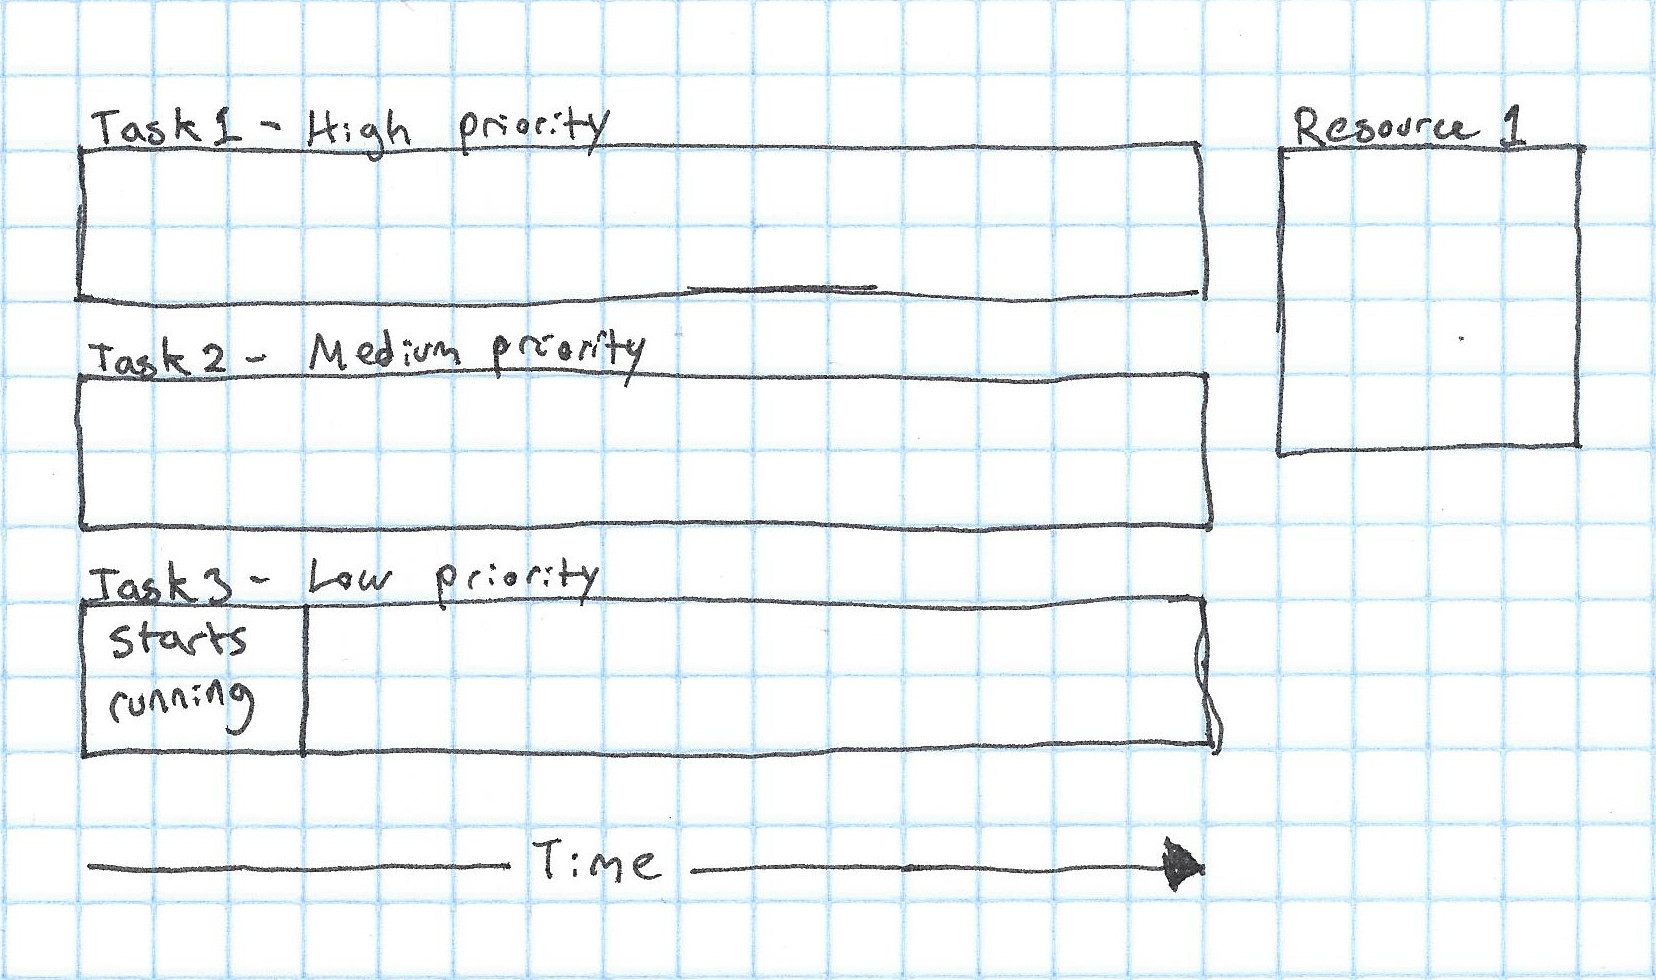 Task 1 - High priority
Resource 1
Task 2 - Medium priority
Task 3 - Low priority
starts
running
Time